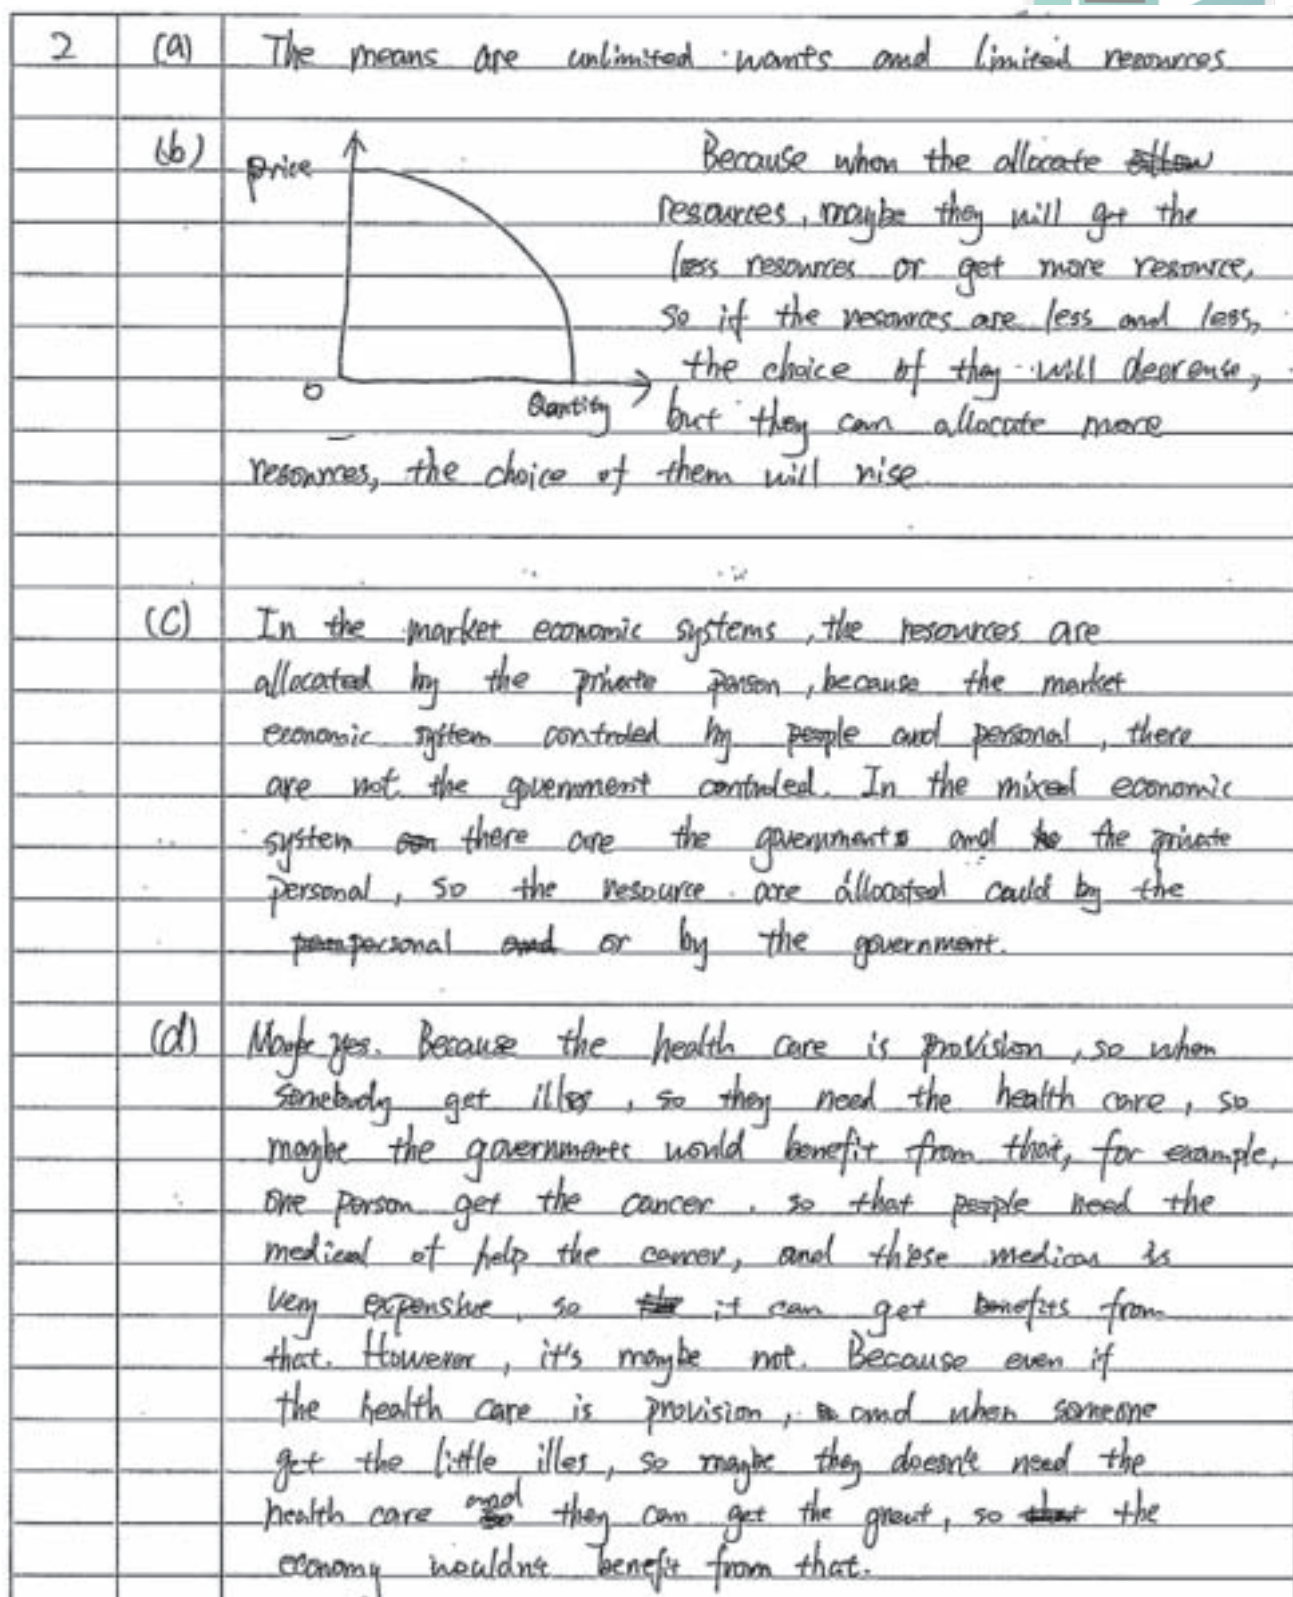 2 (a) The means are unlimited wants and limited resources
(b) price Because when the allocate
resources, maybe they will get the
less resources or get more resource,
so if the resources are less and less,
the choice of they will decrease,
0 Quantity but they can allocate more
resources, the choice of them will rise.
(c) In the market economic systems, the resources are
allocated by the private person, because the market
economic system controled by people and personal, there
are not the government controled. In the mixed economic
system there are the governments and the private
personal, so the resource are allocated could by the
personal or by the government.
(d) Maybe yes. Because the health care is provision, so when
somebody get illes, so they need the health care, so
maybe the governments would benefit from that, for example,
one person get the cancer, so that people need the
medical of help the cancer, and these medical is
very expensive, so it can get benefits from
that. However, it's maybe not. Because even if
the health care is provision, and when someone
get the little illes, so maybe they doesn't need the
health care and they can get the great, so the
economy wouldn't benefit from that.